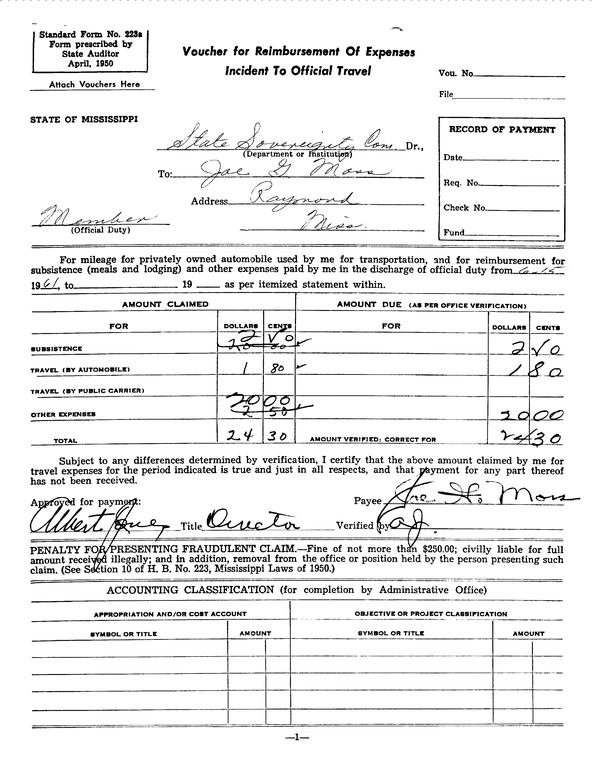 Standard Form No. 223a
Form prescribed by
State Auditor
April, 1950
Attach Vouchers Here
Voucher for Reimbursement Of Expenses
Incident To Official Travel
Vou. No.
File
STATE OF MISSISSIPPI
State Sovereignty Com. Dr.,
(Department or Institution)
To: Joe G Moss
Address Raymond
Miss.
Member
(Official Duty)
RECORD OF PAYMENT
Date
Req. No.
Check No.
Fund
For mileage for privately owned automobile used by me for transportation, and for reimbursement for
subsistence (meals and lodging) and other expenses paid by me in the discharge of official duty from 6-15
1961, to 19 as per itemized statement within.
AMOUNT CLAIMED AMOUNT DUE (AS PER OFFICE VERIFICATION)
FOR DOLLARS CENTS FOR DOLLARS CENTS
SUBSISTENCE 2 50 2 50
TRAVEL (BY AUTOMOBILE) 1 80 1 80
TRAVEL (BY PUBLIC CARRIER)
OTHER EXPENSES 20 00 20 00
TOTAL 24 30 AMOUNT VERIFIED: CORRECT FOR 24 30
Subject to any differences determined by verification, I certify that the above amount claimed by me for
travel expenses for the period indicated is true and just in all respects, and that payment for any part thereof
has not been received.
Approved for payment: Payee Joe G. Moss
Albert Jones Title Director Verified by AJ
PENALTY FOR PRESENTING FRAUDULENT CLAIM.—Fine of not more than $250.00; civilly liable for full
amount received illegally; and in addition, removal from the office or position held by the person presenting such
claim. (See Section 10 of H. B. No. 223, Mississippi Laws of 1950.)
ACCOUNTING CLASSIFICATION (for completion by Administrative Office)
APPROPRIATION AND/OR COST ACCOUNT OBJECTIVE OR PROJECT CLASSIFICATION
SYMBOL OR TITLE AMOUNT SYMBOL OR TITLE AMOUNT
—1—